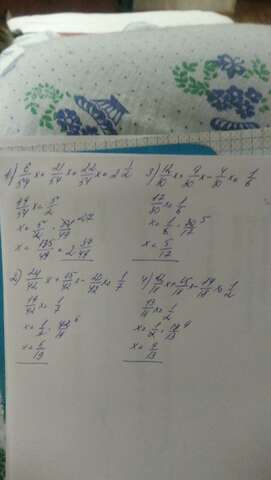 1) 6/54 x + 21/54 x + 22/54 x = 2 1/2
49/54 x = 5/2
x = 5/2 · 54/49 27
x = 135/49 = 2 37/49
3) 12/30 x + 9/30 x - 4/30 x = 1/6
17/30 x = 1/6
x = 1/6 · 30/17 5
x = 5/17
2) 24/42 x + 15/42 x - 20/42 x = 1/7
19/42 x = 1/7
x = 1/7 · 42/19 6
x = 6/19
4) 12/18 x + 15/18 x - 14/18 x = 1/2
13/18 x = 1/2
x = 1/2 · 18/13 9
x = 9/13